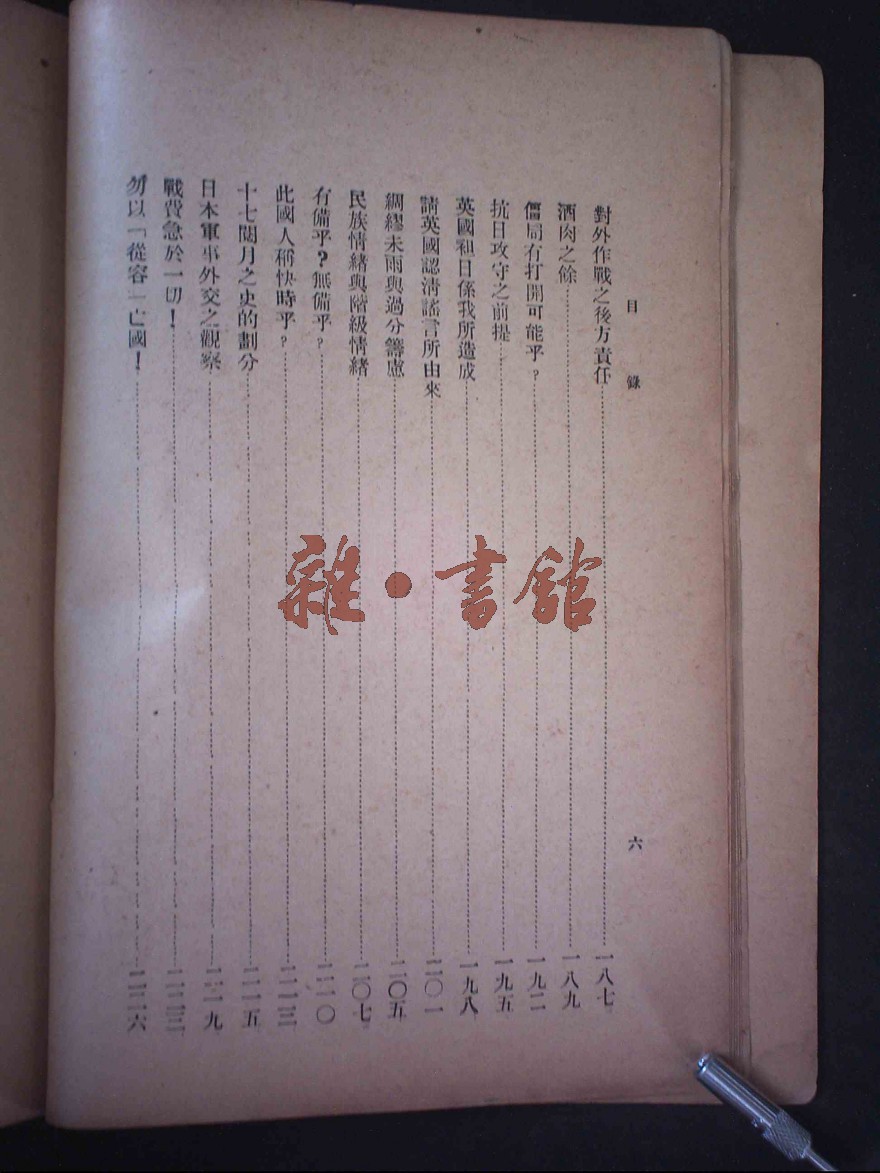 目錄 六
對外作戰之後方責任 一八七
酒肉之餘 一八九
僵局有打開可能乎？ 一九二
抗日攻守之前提 一九五
英國袒日係我所造成 一九八
請英國認淸謠言所由來 二〇一
綢繆未雨與過分籌慮 二〇五
民族情緒與階級情緖 二〇七
有備乎？無備乎？ 二一〇
此國人稱快時乎？ 二一三
十七閱月之史的劃分 二一五
日本軍事外交之觀察 二一九
戰費急於一切！ 二二三
勿以「從容」亡國！ 二二六
雜·書館